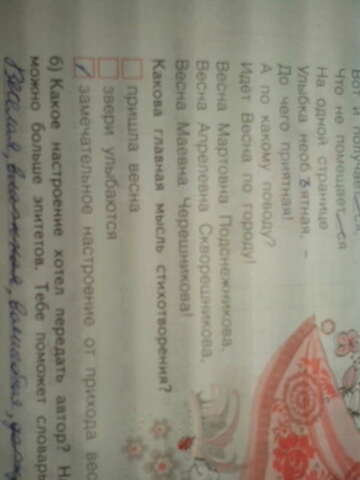 Что не помещается
На одной странице
Улыбка необъятная, –
До чего приятная!
А по какому поводу?
Идёт Весна по городу!
Весна Мартовна Подснежникова,
Весна Апрелевна Скворешникова,
Весна Маевна Черешникова!
Какова главная мысль стихотворения?
пришла весна
звери улыбаются
замечательное настроение от прихода вес
б) Какое настроение хотел передать автор? Н
можно больше эпитетов. Тебе поможет словарь
Весёлая,